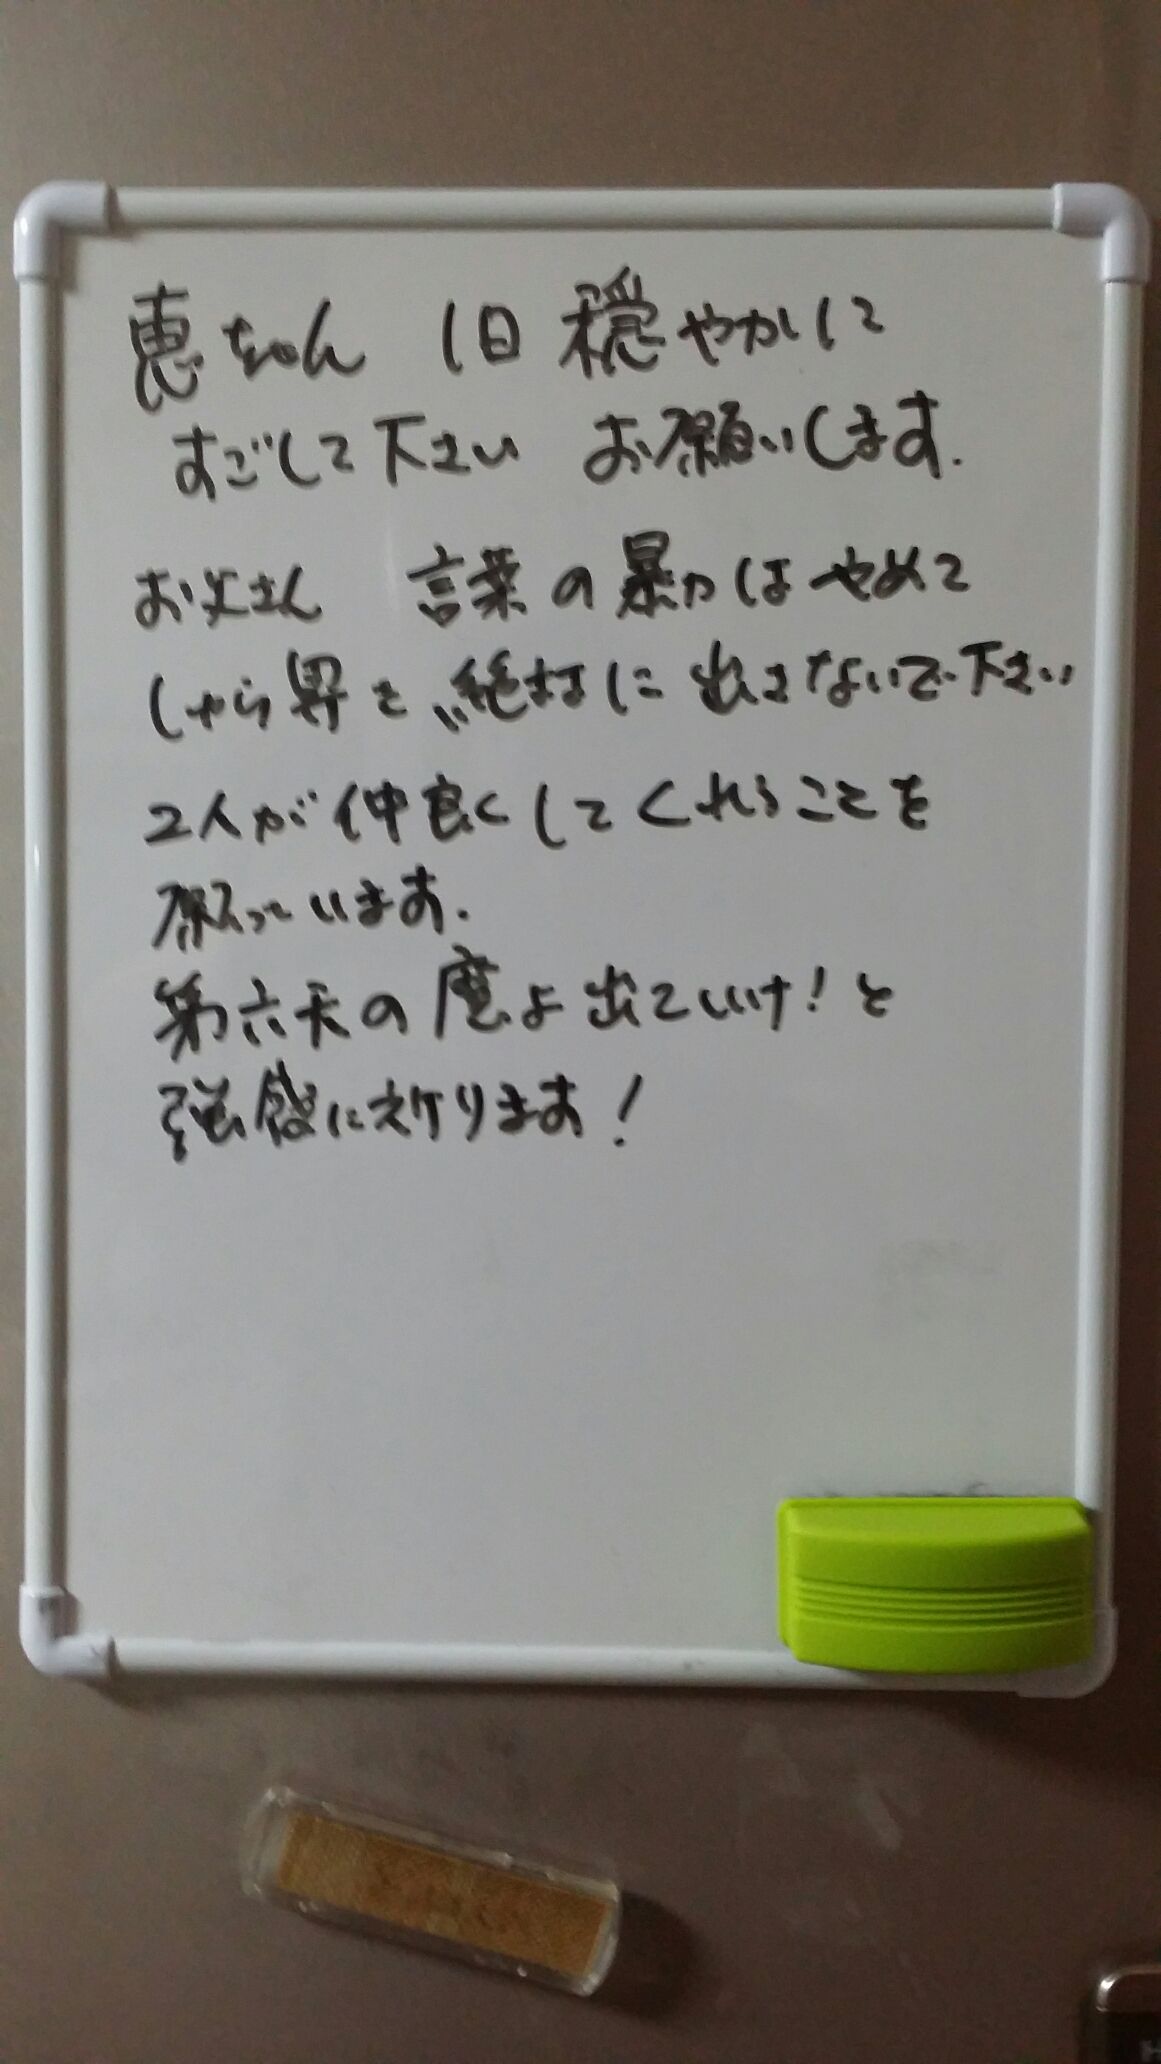 恵ちゃん 1日 穏やかに
すごして下さい お願いします.
お父さん 言葉の暴力はやめて
しゅら界を絶対に出さないで下さい
2人が仲良くしてくれることを
願っています.
第六天の魔よ出ていけ!と
強盛に祈ります!